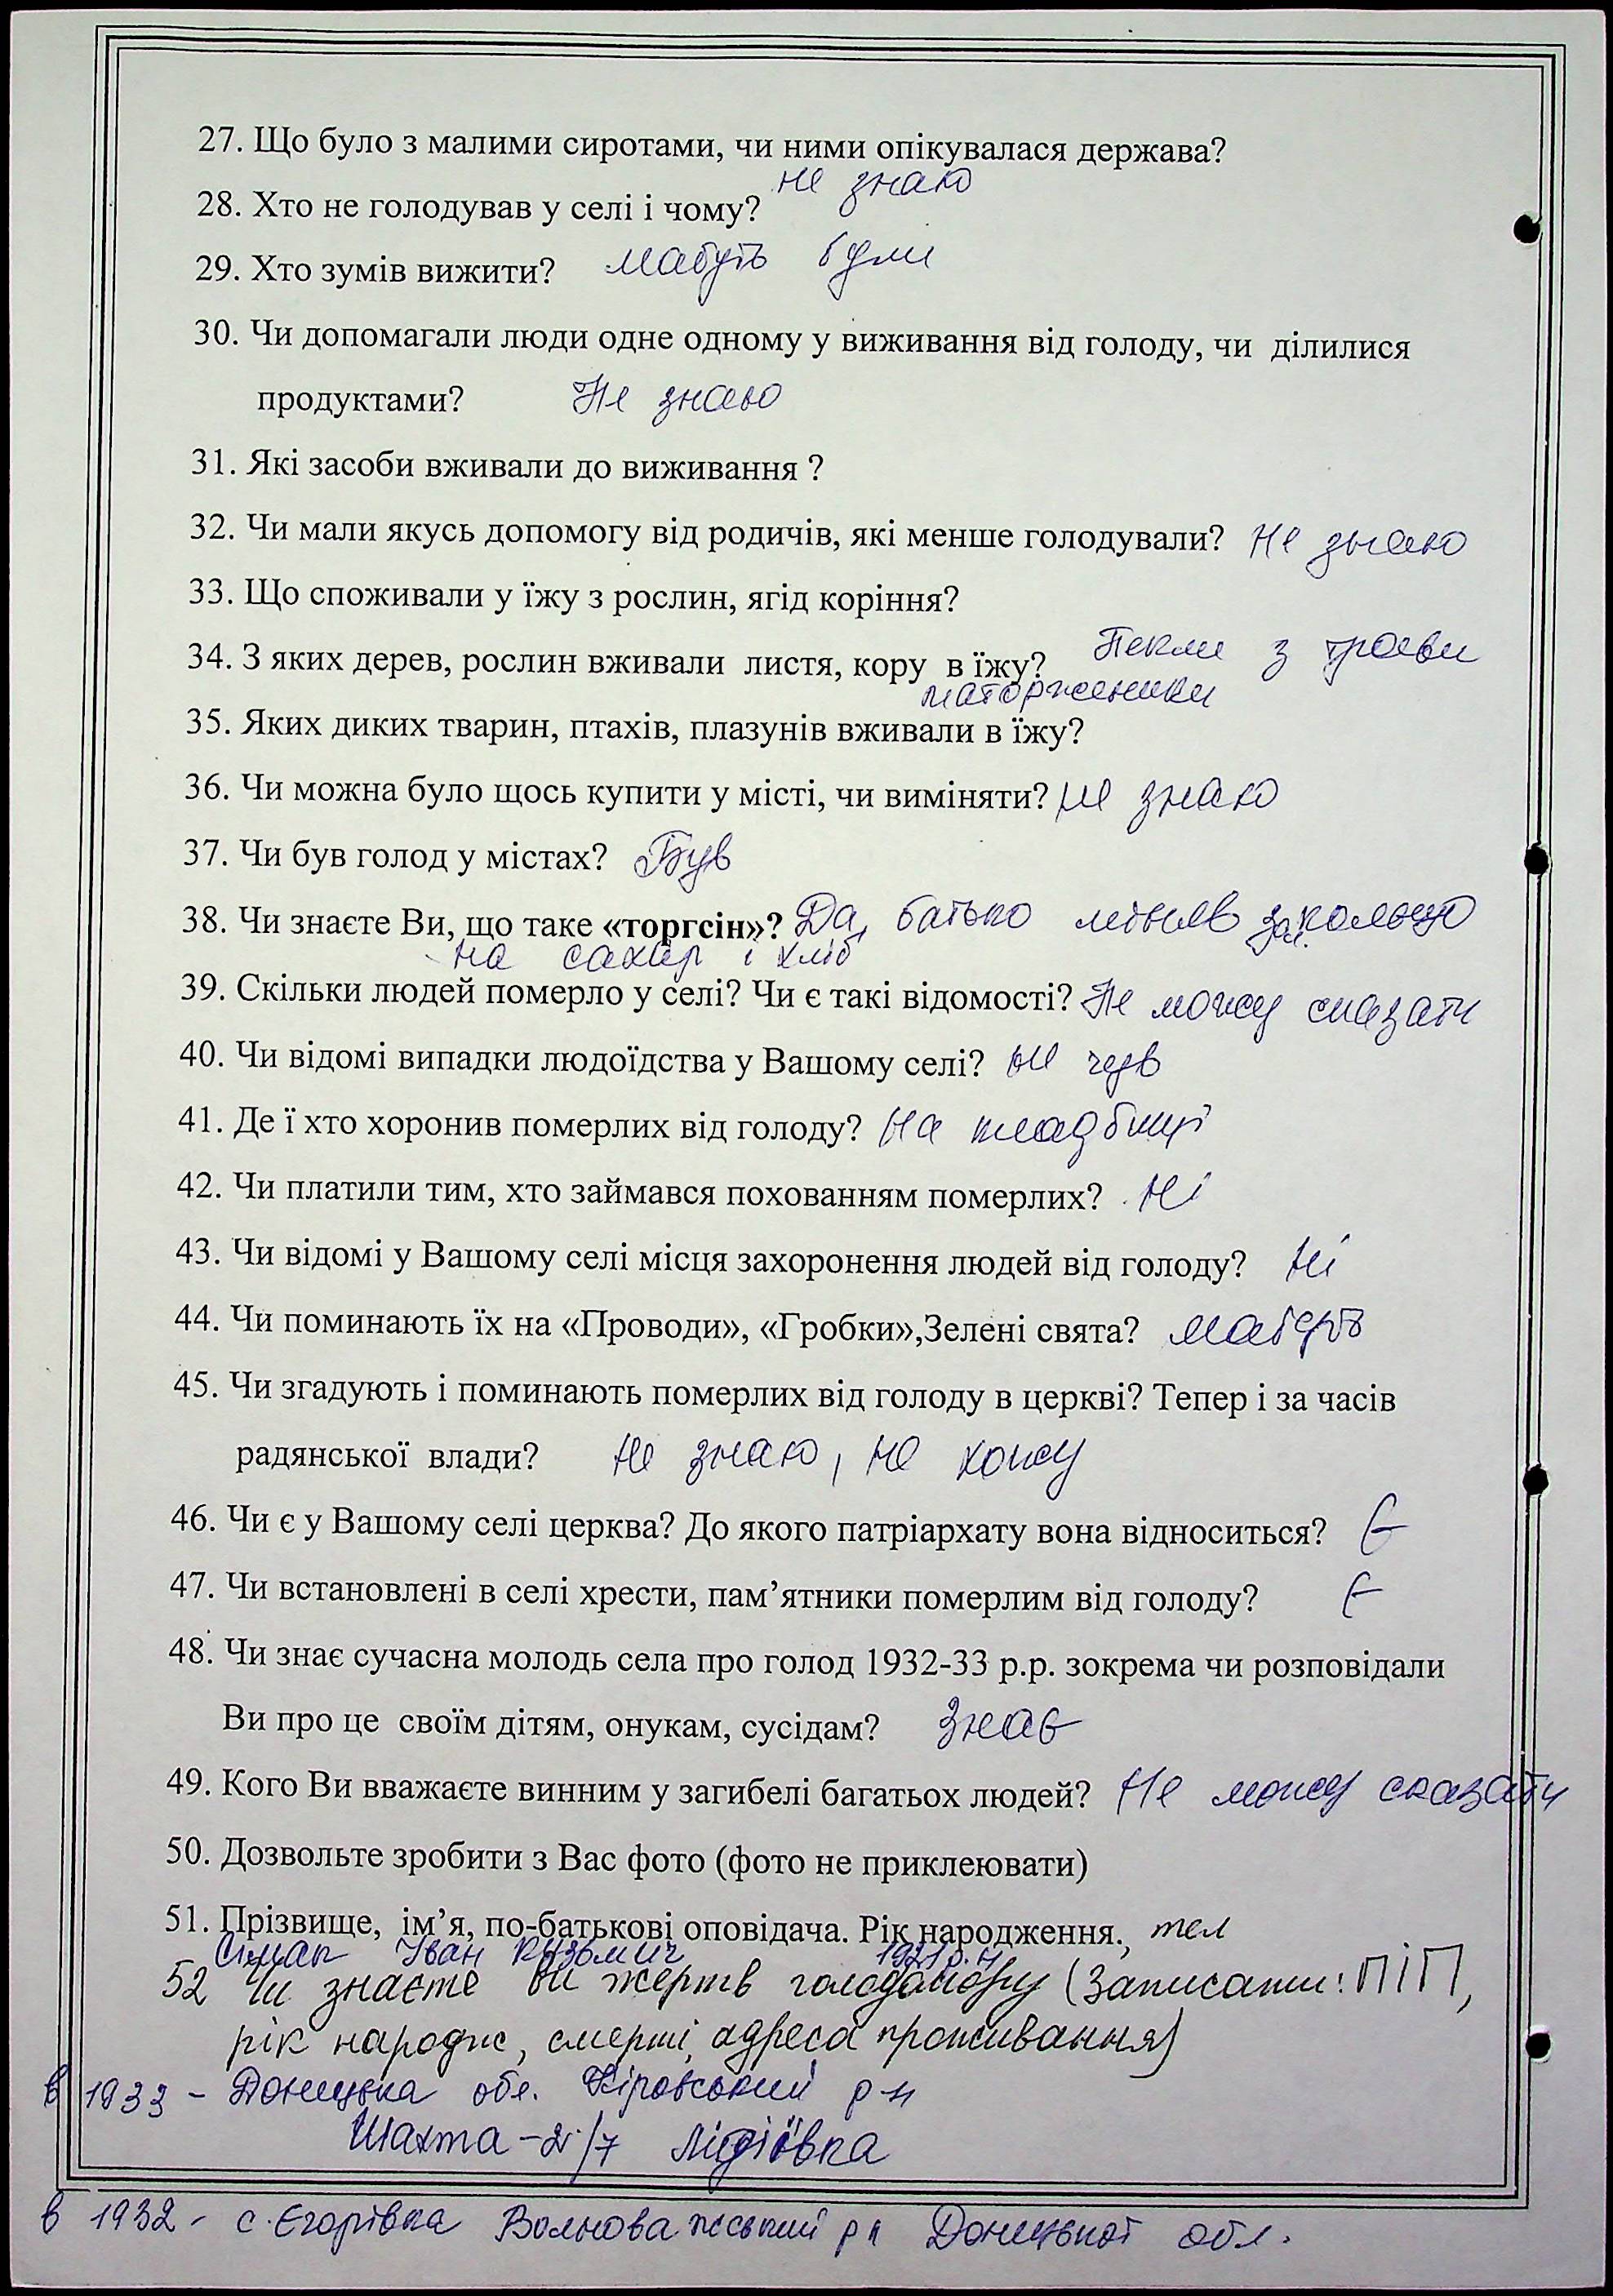 27. Що було з малими сиротами, чи ними опікувалася держава?
не знаю
28. Хто не голодував у селі і чому?
29. Хто зумів вижити? мабуть були
30. Чи допомагали люди одне одному у виживання від голоду, чи ділилися
продуктами? Не знаю
31. Які засоби вживали до виживання ?
32. Чи мали якусь допомогу від родичів, які менше голодували? не знаю
33. Що споживали у їжу з рослин, ягід коріння?
34. З яких дерев, рослин вживали листя, кору в їжу? Пекли з трави
маторженики
35. Яких диких тварин, птахів, плазунів вживали в їжу?
36. Чи можна було щось купити у місті, чи виміняти? не знаю
37. Чи був голод у містах? Був
38. Чи знаєте Ви, що таке «торгсін»? Да, батько міняв зол. кольцо
на сахар і хліб
39. Скільки людей померло у селі? Чи є такі відомості? Не можу сказати
40. Чи відомі випадки людоїдства у Вашому селі? не чув
41. Де ї хто хоронив померлих від голоду? На кладбищі
42. Чи платили тим, хто займався похованням померлих? Ні
43. Чи відомі у Вашому селі місця захоронення людей від голоду? Ні
44. Чи поминають їх на «Проводи», «Гробки»,Зелені свята? мабуть
45. Чи згадують і поминають померлих від голоду в церкві? Тепер і за часів
радянської влади? Не знаю, не хожу
46. Чи є у Вашому селі церква? До якого патріархату вона відноситься? Є
47. Чи встановлені в селі хрести, пам’ятники померлим від голоду? Є
48. Чи знає сучасна молодь села про голод 1932-33 р.р. зокрема чи розповідали
Ви про це своїм дітям, онукам, сусідам? Знає
49. Кого Ви вважаєте винним у загибелі багатьох людей? Не можу сказати
50. Дозвольте зробити з Вас фото (фото не приклеювати)
51. Прізвище, ім’я, по-батькові оповідача. Рік народження., тел
Сімак Іван Кузьмич 1921 р.н
52 Чи знаєте Ви жертв голодомору (Записати: ПІП,
рік народж, смерті, адреса проживання)
в 1933 - Донецька обл. Кіровський р-н
Шахта - 2/7 Лідіївка
в 1932 - с. Єгорівка Волноважський р н Донецької обл.